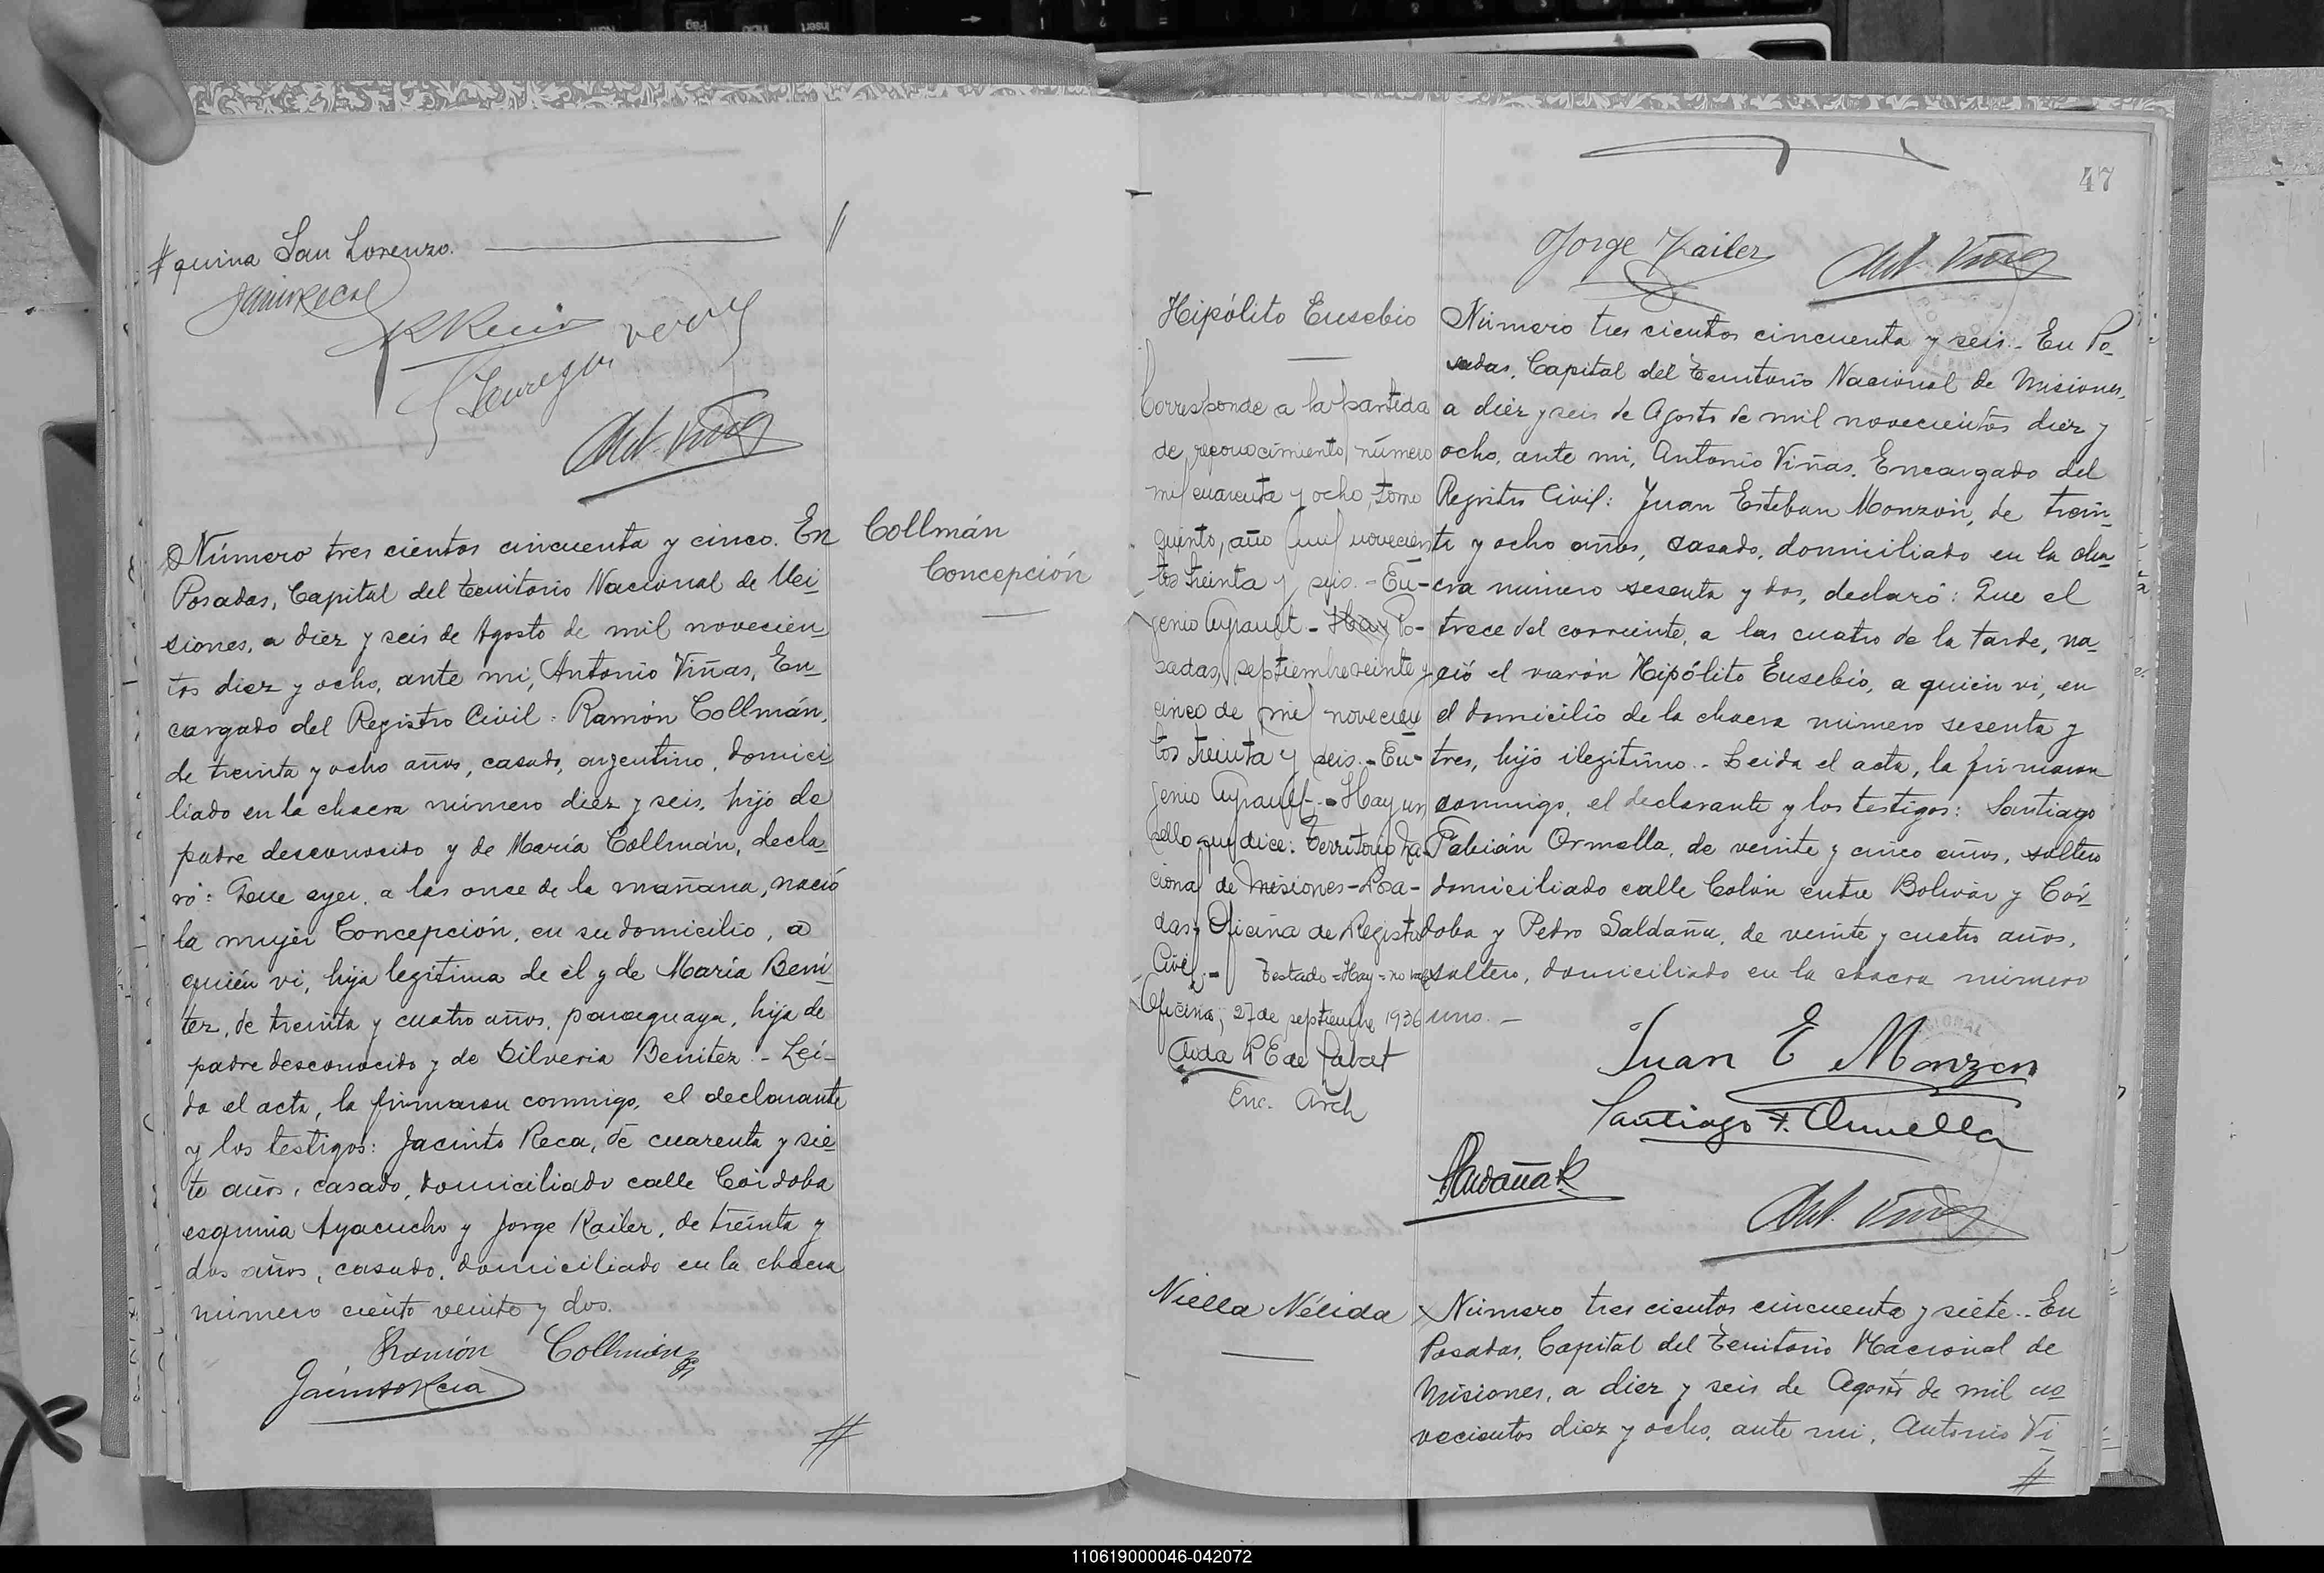 # quina San Lorenzo.
Ant. Viñas
Número tres cientos cincuenta y cinco. En
Posadas, Capital del Territorio Nacional de Mi
siones, a diez y seis de Agosto de mil novecien
tos diez y ocho, ante mi, Antonio Viñas, En
cargado del Registro Civil: Ramón Collmán,
de treinta y ocho años, casado, argentino, domici
liado en la chacra número diez y seis, hijo de
padre desconocido y de María Collmán, decla
ró: Que ayer, a las once de la mañana, nació
la mujer Concepción, en su domicilio, a
quién vi, hija legítima de él y de María Bení
tez, de treinta y cuatro años, paraguaya, hija de
padre desconocido y de Silveria Benítez.- Leí-
da el acta, la firmaron conmigo, el declarante
y los testigos: Jacinto Reca, de cuarenta y sie
te años, casado, domiciliado calle Córdoba
esquina Ayacucho y Jorge Kailer, de treinta y
dos años, casado, domiciliado en la chacra
número ciento veinte y dos.
Ramón Collmán
Jacinto Reca
#
Collmán
Concepción
47
Jorge Kailer Ant. Viñas
Hipólito Eusebio
Corresponde a la partida
de reconocimiento número
mil cuarenta y ocho, tomo
quinto, año mil novecien
tos treinta y seis.- Eu-
genio Ayrault - Hay Po-
sadas, septiembre veinte y
cinco de mil novecien
tos treinta y seis.- Eu-
genio Ayrault.- Hay un
sello que dice: Territorio Na-
cional de Misiones-Posa-
das, Oficina de Registro
Civil.- Testado=Hay=no vale
Oficina, 27 de septiembre 1936
Enc. Arch
Número tres cientos cincuenta y seis.- En Po
sadas, Capital del Territorio Nacional de Misiones,
a diez y seis de Agosto de mil novecientos diez y
ocho, ante mi, Antonio Viñas, Encargado del
Registro Civil: Juan Esteban Monzón, de trein
ta y ocho años, casado, domiciliado en la cha
cra número sesenta y dos, declaró: Que el
trece del corriente, a las cuatro de la tarde, na
ció el varón Hipólito Eusebio, a quién vi, en
el domicilio de la chacra número sesenta y
tres, hijo ilegítimo.- Leida el acta, la firmaron
conmigo, el declarante y los testigos: Santiago
Fabián Ormella, de veinte y cinco años, soltero
domiciliado calle Colón entre Bolívar y Cór
doba y Pedro Saldaña, de veinte y cuatro años,
soltero, domiciliado en la chacra número
uno.-
Juan E Monzon
Santiago F. Ormella
Ant. Viñas
Niella Nélida
Número tres cientos cincuenta y siete.- En
Posadas, Capital del Territorio Nacional de
Misiones, a diez y seis de Agosto de mil no
vecientos diez y ocho, ante mi, Antonio Vi
#
110619000046-042072